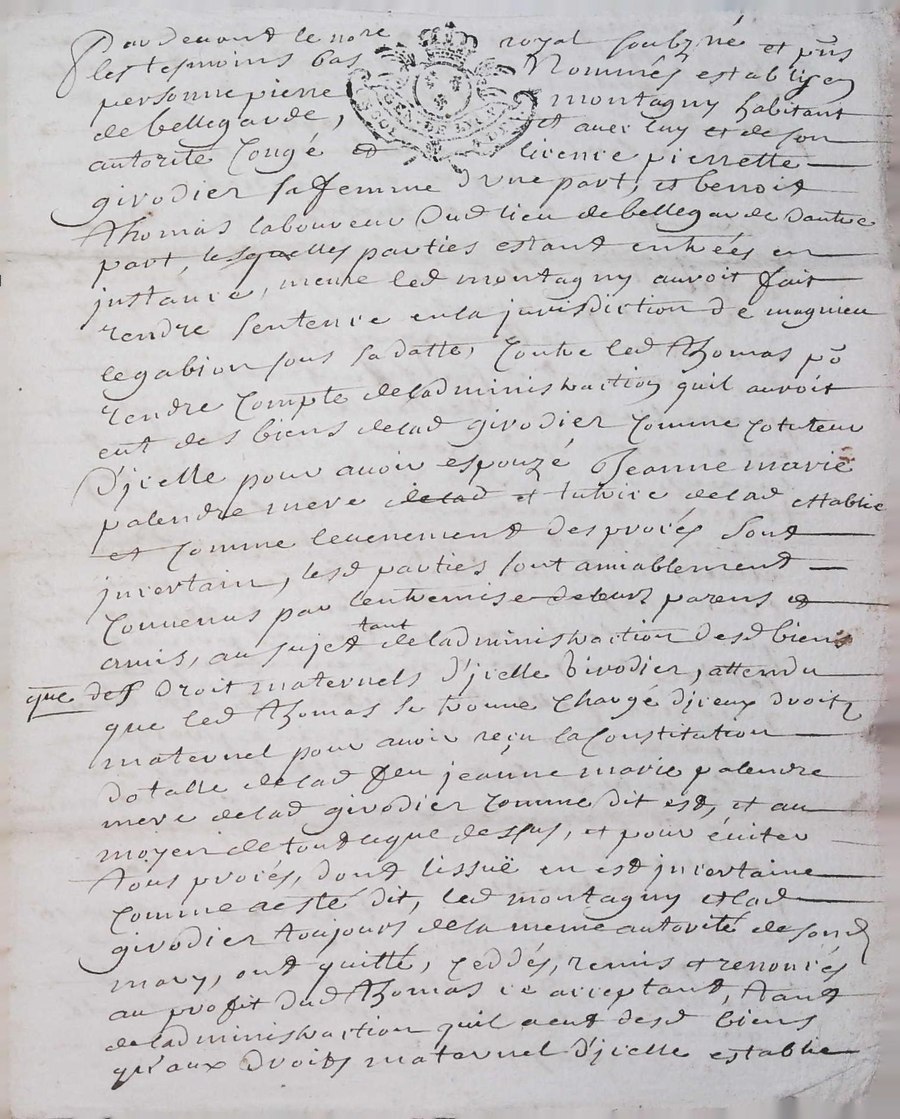 Par devant le nore royal soubzné et pñs
les tesmoins bas Nommés establis en
personne pierre montagny habitant
de bellegarde, et avec luy et de son
autorité Congé et licence pierrette
girodier sa femme d'une part, et benoit
Thomas laboureur dud lieu de bellegarde dautre
part, lesquelles parties estant entrées en
jnstance, meme led montagny auroit fait
rendre sentence en la jurisdiction de magnieu
legabion sous sa datte, Contre led Thomas po
rendre Compte de ladministraction quil auroit
eut des biens de lad girodier Comme Cotuteur
d'jcelle pour avoir espouzé Jeanne marie
palendre mere de lad et tutrice de lad establie
et Comme levenement des procés sont
jncertain, lesd parties sont amiablement
Convenus par lentremise de leurs parens et
amis, au sujet tant de ladministraction desd biens
que des droit maternels d'jcelle Girodier, attendu
que led Thomas se trouve Chargé djceux droitz
maternel pour avoir reçu la Constitution
dotalle de lad feu jeanne marie palendre
mere de lad girodier Comme dit est, et au
moyen de tout ceque dessus, et pour éviter
tous procés, dont lissuë en est jncertaine
Comme a esté dit, led montagny et lad
girodier toujours de la meme autorité de sond
mary, ont quitté, Ceddés, remis et renoncés
au profit dud Thomas ce acceptant, tant
de ladministraction quil a eut desd biens
qu'aux droits maternel d'jcelle establie